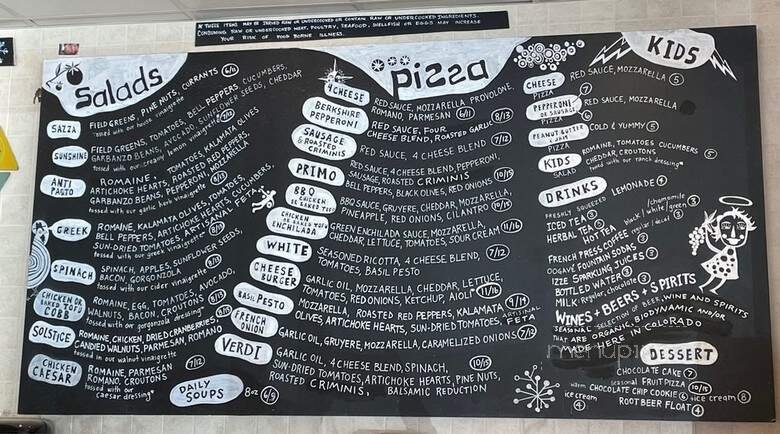 * THESE ITEMS MAY BE SERVED RAW OR UNDERCOOKED OR CONTAIN RAW OR UNDERCOOKED INGREDIENTS.
CONSUMING RAW OR UNDERCOOKED MEAT, POULTRY, SEAFOOD, SHELLFISH OR EGGS MAY INCREASE
YOUR RISK OF FOOD BORNE ILLNESS.
Salads
SAZZA
FIELD GREENS, PINE NUTS, CURRANTS 6/11
tossed with our house vinaigrette
SUNSHINE
FIELD GREENS, TOMATOES, BELL PEPPERS, CUCUMBERS,
GARBANZO BEANS, AVOCADO, SUNFLOWER SEEDS, CHEDDAR
tossed with our creamy lemon vinaigrette
ANTI PASTO
ROMAINE, TOMATOES, KALAMATA OLIVES
ARTICHOKE HEARTS, ROASTED RED PEPPERS,
GARBANZO BEANS, PEPPERONI, MOZZARELLA
tossed with our garlic herb vinaigrette
GREEK
ROMAINE, KALAMATA OLIVES, TOMATOES,
BELL PEPPERS, ARTICHOKE HEARTS, CUCUMBERS,
SUN-DRIED TOMATOES, ARTISANAL FETA
tossed with our greek vinaigrette 8/15
SPINACH
SPINACH, APPLES, SUNFLOWER SEEDS,
BACON, GORGONZOLA
tossed with our cider vinaigrette
CHICKEN OR BAKED TOFU COBB
ROMAINE, EGG, TOMATOES, AVOCADO,
WALNUTS, BACON, CROUTONS
tossed with our gorgonzola dressing*
SOLSTICE
ROMAINE, CHICKEN, DRIED CRANBERRIES,
CANDIED WALNUTS, PARMESAN, ROMANO
tossed in our walnut vinaigrette
CHICKEN CAESAR
ROMAINE, PARMESAN 7/12
ROMANO, CROUTONS
tossed with our
caesar dressing*
DAILY SOUPS
8oz 6/9
Pizza
4CHEESE
RED SAUCE, MOZZARELLA, PROVOLONE,
ROMANO, PARMESAN 6/11
BERKSHIRE PEPPERONI
RED SAUCE, FOUR
CHEESE BLEND, ROASTED GARLIC 8/13
SAUSAGE & ROASTED CRIMINIS
RED SAUCE, 4 CHEESE BLEND 7/12
PRIMO
RED SAUCE, 4 CHEESE BLEND, PEPPERONI,
SAUSAGE, ROASTED CRIMINIS
BELL PEPPERS, BLACK OLIVES, RED ONIONS 10/15
BBQ CHICKEN OR BAKED TOFU
BBQ SAUCE, GRUYERE, CHEDDAR, MOZZARELLA,
PINEAPPLE, RED ONIONS, CILANTRO 10/15
CHICKEN OR BAKED TOFU ENCHILADA
GREEN ENCHILADA SAUCE, MOZZARELLA,
CHEDDAR, LETTUCE, TOMATOES, SOUR CREAM 11/16
WHITE
SEASONED RICOTTA, 4 CHEESE BLEND, 7/12
TOMATOES, BASIL PESTO
CHEESE BURGER
GARLIC OIL, MOZZARELLA, CHEDDAR, LETTUCE,
TOMATOES, RED ONIONS, KETCHUP, AIOLI* 11/16
BASIL PESTO
MOZZARELLA, ROASTED RED PEPPERS, KALAMATA 9/14
OLIVES ARTICHOKE HEARTS, SUN-DRIED TOMATOES, ARTISINAL FETA
FRENCH ONION
GARLIC OIL, GRUYERE, MOZZARELLA, CARAMELIZED ONIONS 7/12
VERDI
GARLIC OIL, 4 CHEESE BLEND, SPINACH, 10/15
SUN-DRIED TOMATOES, ARTICHOKE HEARTS, PINE NUTS,
ROASTED CRIMINIS, BALSAMIC REDUCTION
KIDS
CHEESE PIZZA
RED SAUCE, MOZZARELLA 5
PEPPERONI OR SAUSAGE PIZZA
RED SAUCE, MOZZARELLA
PEANUT BUTTER & JAM PIZZA
COLD & YUMMY 5
KIDS SALAD
ROMAINE, TOMATOES CUCUMBERS
CHEDDAR, CROUTONS 5
tossed with our ranch dressing*
DRINKS
FRESHLY SQUEEZED LEMONADE 4
ICED TEA 3
HERBAL TEA 3
HOT TEA chamomile black/white/green 3
FRENCH PRESS COFFEE regular/decaf 3
OOGAVE FOUNTAIN SODAS
IZZE SPARKLING JUICES
BOTTLED WATER
MILK Regular, Chocolate
WINES + BEERS + SPIRITS
SEASONAL SELECTION OF BEER, WINE AND SPIRITS
THAT ARE ORGANIC, BIODYNAMIC AND/OR
MADE HERE IN COLORADO
menupix
DESSERT
CHOCOLATE CAKE 7
SEASONAL FRUIT PIZZA 10/15
warm CHOCOLATE CHIP COOKIE 6 + ice cream 8
ice cream 4
ROOT BEER FLOAT 4